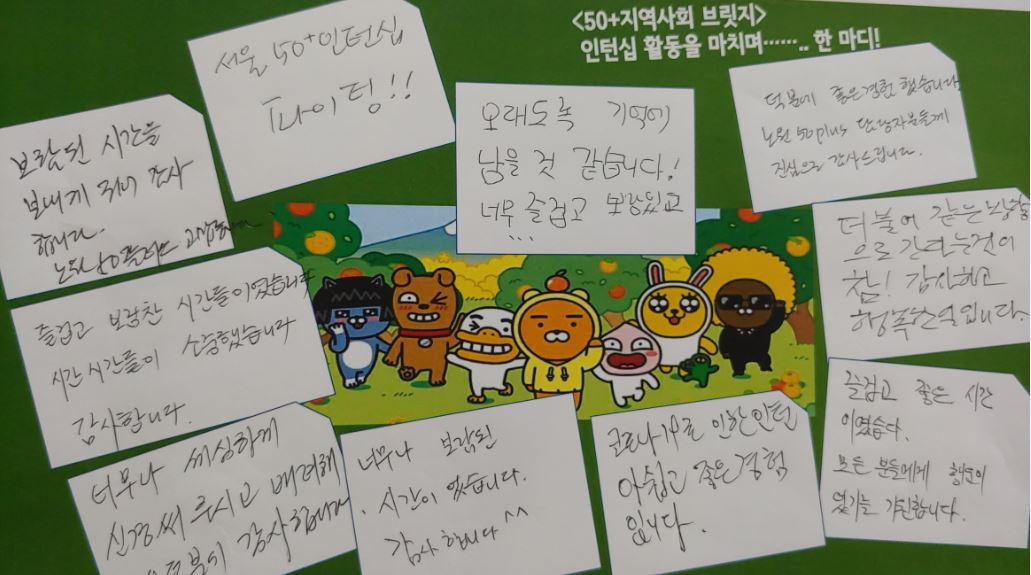 <50+지역사회 브릿지>
인턴십 활동을 마치며........ 한 마디!
서울 50+인턴십
파이팅!!
오래도록 기억에
남을 것 같습니다!
너무 즐겁고 보람있고
...
덕분에 좋은경험 했습니다
노원 50plus 담당자분들께
진심으로 감사드립니다.
보람된 시간을
보내게 되어 감사
합니다.
더불어 같은
으로 간다는것이
참! 감사하고
행복 입니다.
즐겁고 보람찬 시간들이였습니다
시간 시간들이 소중했습니다
감사합니다.
즐겁고 좋은 시간
이였습다.
모든 분들에게 행운이
있기를 기원합니다.
너무나 세심하게
신경써 주시고 배려해
감사합니다
너무나 보람된
시간이 었습니다.
감사 합니다 ^^
코로나19로 인한 인턴
아쉽고 좋은 경험
입니다.